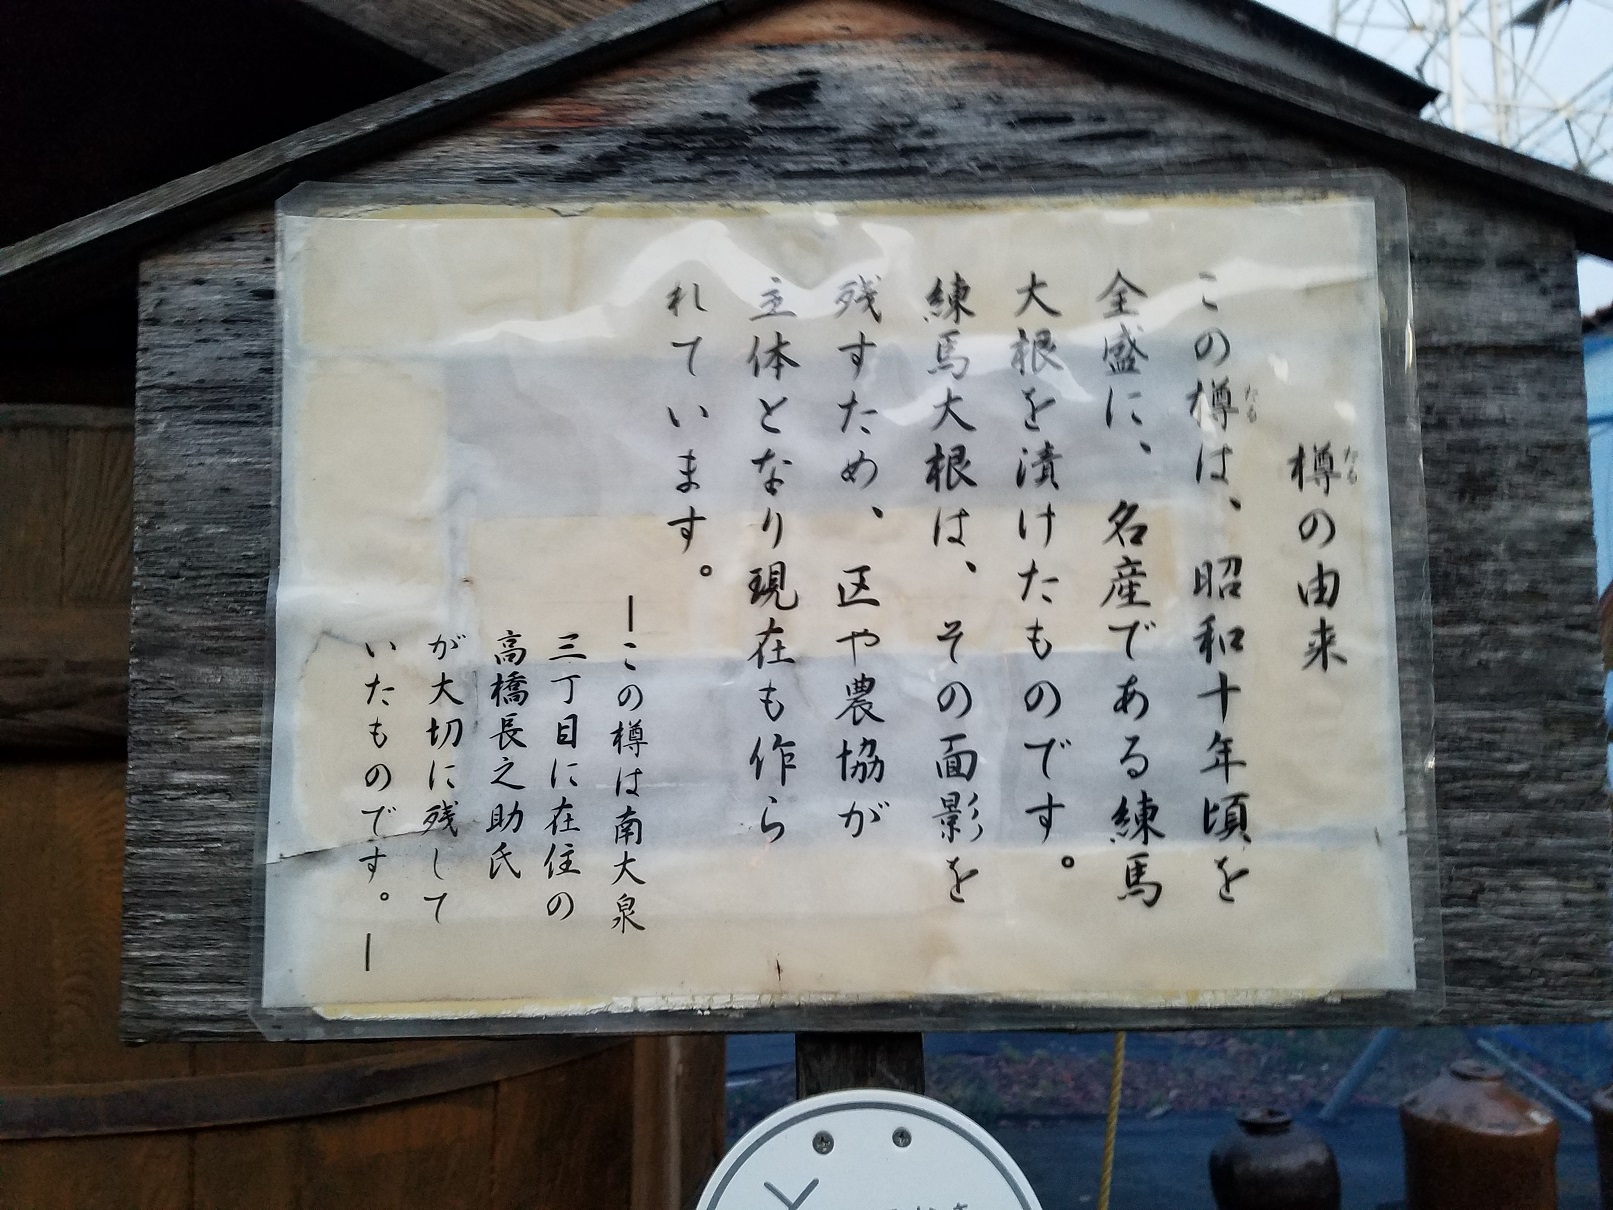 樽の由来
たる
この樽は、昭和十年頃を
たる
全盛に、名産である練馬
大根を漬けたものです。
練馬大根は、その面影を
残すため、区や農協が
主体となり現在も作ら
れています。
―この樽は南大泉
三丁目に在住の
高橋長之助氏
が大切に残して
いたものです。―